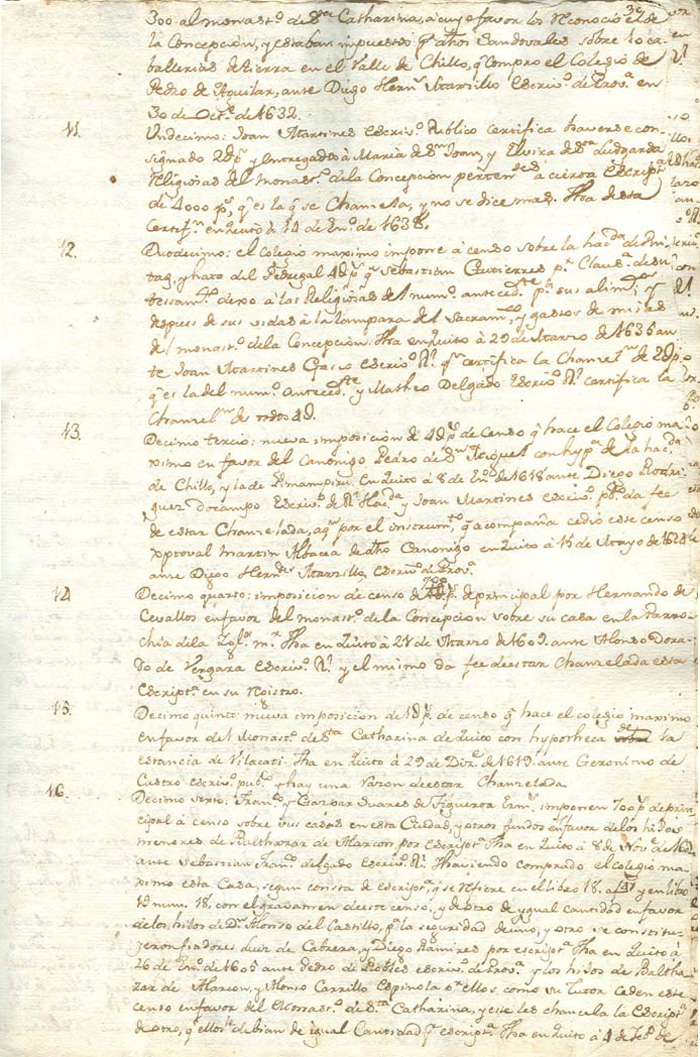 300 al monastº de Sta Catharina, a cuyo favor los reconoció el de
la Concepcion, y estaban impuestos pr dhos Sandovales sobre 10 ca-
ballerias de tierra en el Valle de Chillo, q compro el Colegio de
Pedro de Aguilar, ante Diego Hernz Escrivº de Provª en
30 de Octe de 1632.
11. Undecimo: Joan Martines Escrivº Publico certifica haverse con-
signado 2Ups y entregados à Maria de Sn Joan, y Elvira de Sta Ludgarda
Religiosas del monastº de la Concepcion à cierta Escriptª
de 4000 ps, q es la q se Chanzela, y no se dice mas. Fha desta
Certifn en Quito à 14 de Enº de 1638.
12. Duodecimo: el Colegio maximo impone à censo sobre la hacda de
tag, y hato del Pedregal 4Ups q Sebastian Gutierres pr Clausª de su
testamtº dexo à las Religsas del numº antecedte pª sus alimtos, y
despues de sus vidas à la lampara del Sacramto, y gastos de misas
del monastº de la Concepcion. Fha en Quito à 29 de Marzo de 1635 an-
te Joan Martines Gasco Escrivº Rl qn certifica la Chanceln de 2Ups
q es la del numº antecedte y Matheo Delgado Escrivº Rl certifica la
Chanzeln de todos 4U.
13. Decimo tercio: nueva imposicion de 4Ups de Censo q hace el Colegio ma-
ximo en favor del Canonigo Pedro de Sn Miguel con hypca de la hacda
de Chillo, y la de Pimampiro. En Quito à 8 de Enº de 1618 ante Diego Rodri-
guez Docampo Escrivº de Rl Hacda y Joan Martines Escrivº pbcº da fee
de estar Chanzelada, aqn por el instrumtº q acompaña cedio este censo
Xptoval Martin Albacea de dho Canonigo en Quito à 15 de Mayo de 1628
ante Diego Hernz Escrivº de Provª
14. Decimo quarto: imposicion de censo de 700 ps de principal por Hernando de
Cevallos en favor del monastº de la Concepcion sobre su casa en la Parro-
chia de la Fha en Quito à 21 de Marzo de 1609. ante Alonso Dora-
do de Vergara Escrivº Rl y el mismo da fee de estar Chanzelada esta
Escriptª en su Rgistro.
15. Decimo quinto: nueva imposicion de 1Ups de censo q hace el colegio maximo
en favor del Monastº de Sta Catharina de Quito con hypotheca de la
estancia de Vilacati. Fha en Quito à 29 de Dizre de 1619. ante Geronimo de
Castro escrivº pubº y hay una razon de estar Chanzelada.
16. Decimo Sexto: Franº y Gaspar Suares de Figueroa Ermos imponen 700 ps de prin-
cipal à censo sobre sus casas en esta Ciudad, y otros fundos en favor de los hijos
menores de Balthazar de Alarcon, por escriptª Fha en Quito à 8 de Nove de
ante Sebastian Franº delgado Escrivº Rl. Y haviendo comprado el colegio ma-
ximo esta Casa, segun consta de escriptª, q se refiere en el libro 18. y en libro
13 num. 18, con el gravamen de este censo, y de otro de ygual cantidad en favor
de los hijos de Dn Alonso del Castillo, pª la seguridad de uno, y otro se constitu-
yeron fiadores Luis de Cabrera, y Diego Ramires, por escriptª Fha en Quito à
26 de Enº de 1605 ante Pedro de Robles escrivº de Provª y los hijos de Baltha-
zar de Alarcon, y Alonso Carrillo Espinola en ellos como su Tutor ceden este
censo en favor del Monastº de Sta Catharina, y este les chancela la Escriptª
de otro, q ellos le debian de igual Cantidad pr escriptª Fha en Quito à 4 de Febº de